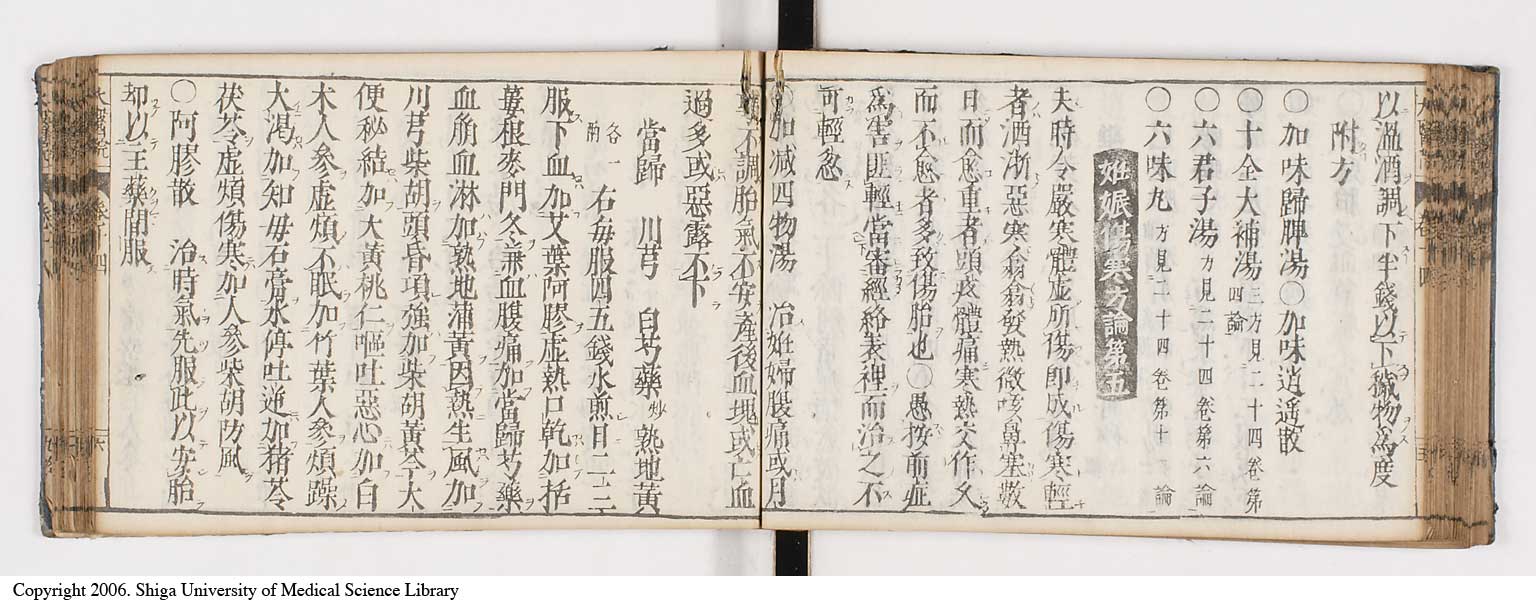 以溫酒調下半錢以下穢物爲度
附方
〇加味歸脾湯〇加味逍遙散
〇十全大補湯三方見二十四卷第四論
〇六君子湯方見二十四卷第六論
〇六味丸方見二十四卷第十論
姙娠傷寒方論第五
夫時令嚴寒體虛所傷卽成傷寒輕
者洒淅惡寒翕翕發熱微咳鼻塞數
日而愈重者頭疼體痛寒熱交作久
而不愈者多致傷胎也〇愚按前症
爲害匪輕當審經絡表裡而治之不
可輕忽
〇加減四物湯 治姙婦腹痛或月
不調胎氣不安產後血塊或亡血
過多或惡露不下
當歸 川芎 白芍藥炒 熟地黃
各一兩 右每服四五錢水煎日二三
服下血加艾葉阿膠虛熱口乾加栝
蔞根麥門冬兼血腹痛加當歸芍藥
血崩血淋加熟地蒲黃因熱生風加
川芎柴胡頭昏項强加柴胡黃芩大
便秘結加大黃桃仁嘔吐惡心加白
朮人參虛煩不眠加竹葉人參煩躁
大渴加知母石膏水停吐逆加猪苓
茯苓虛煩傷寒加人參柴胡防風
〇阿膠散 治時氣先服此以安胎
却以主藥間服
Copyright 2006. Shiga University of Medical Science Library